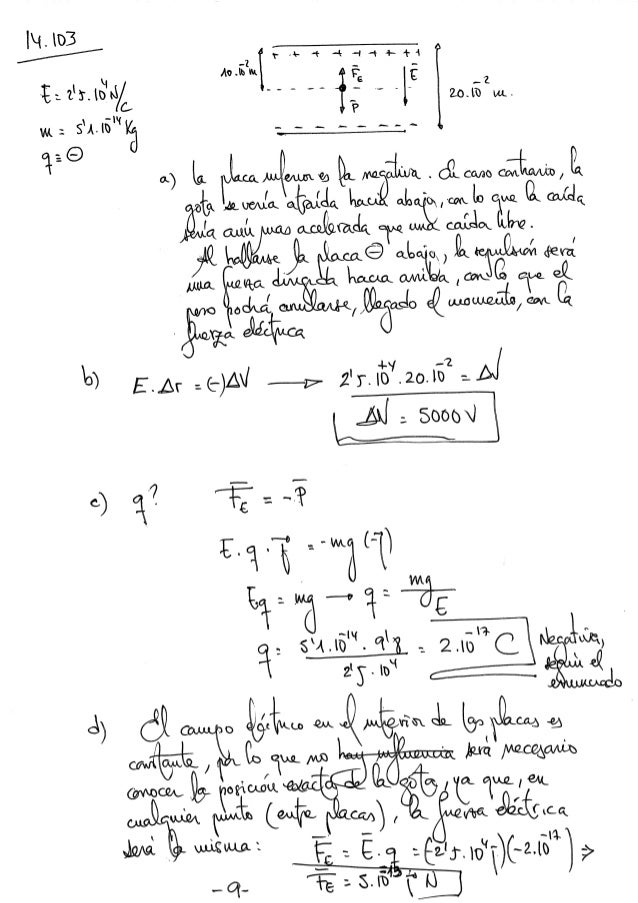 14.103
+ + + + + + + +
10.10⁻²m
F̄E
Ē
P̄
20.10⁻² m.
– – – – – –
E = 2'5.10⁴ N/C
m = 5'1.10⁻¹⁴ Kg
q = ⊖
a) La placa inferior es la negativa. En caso contrario, la
gota se vería atraída hacia abajo, con lo que la caída
sería aún mas acelerada que una caída libre.
Al hallarse la placa ⊖ abajo, la repulsión será
una fuerza dirigida hacia arriba, con lo que el
peso podrá anularse, llegado el momento, con la
fuerza eléctrica
b) E.Δr = (-)ΔV → 2'5.10⁺⁴.20.10⁻² = ΔV
ΔV = 5000 V
c) q? F̄E = -P̄
E.q.j⃗ = -mg(-j⃗)
Eq = mg → q = mg/E
q = 5'1.10⁻¹⁴.9'8 / 2'5.10⁴ = 2.10⁻¹⁷ C
Negativa,
según el
enunciado
d) El campo eléctrico en el interior de las placas es
constante, por lo que no hay influencia será necesario
conocer la posición exacta de la gota, ya que, en
cualquier punto (entre placas), la fuerza eléctrica
será la misma: F̄E = Ē.q = (-2'5.10⁴ j⃗)(-2.10⁻¹⁷) ⇒
F̄E = 5.10⁻¹³ j⃗ N
-9-